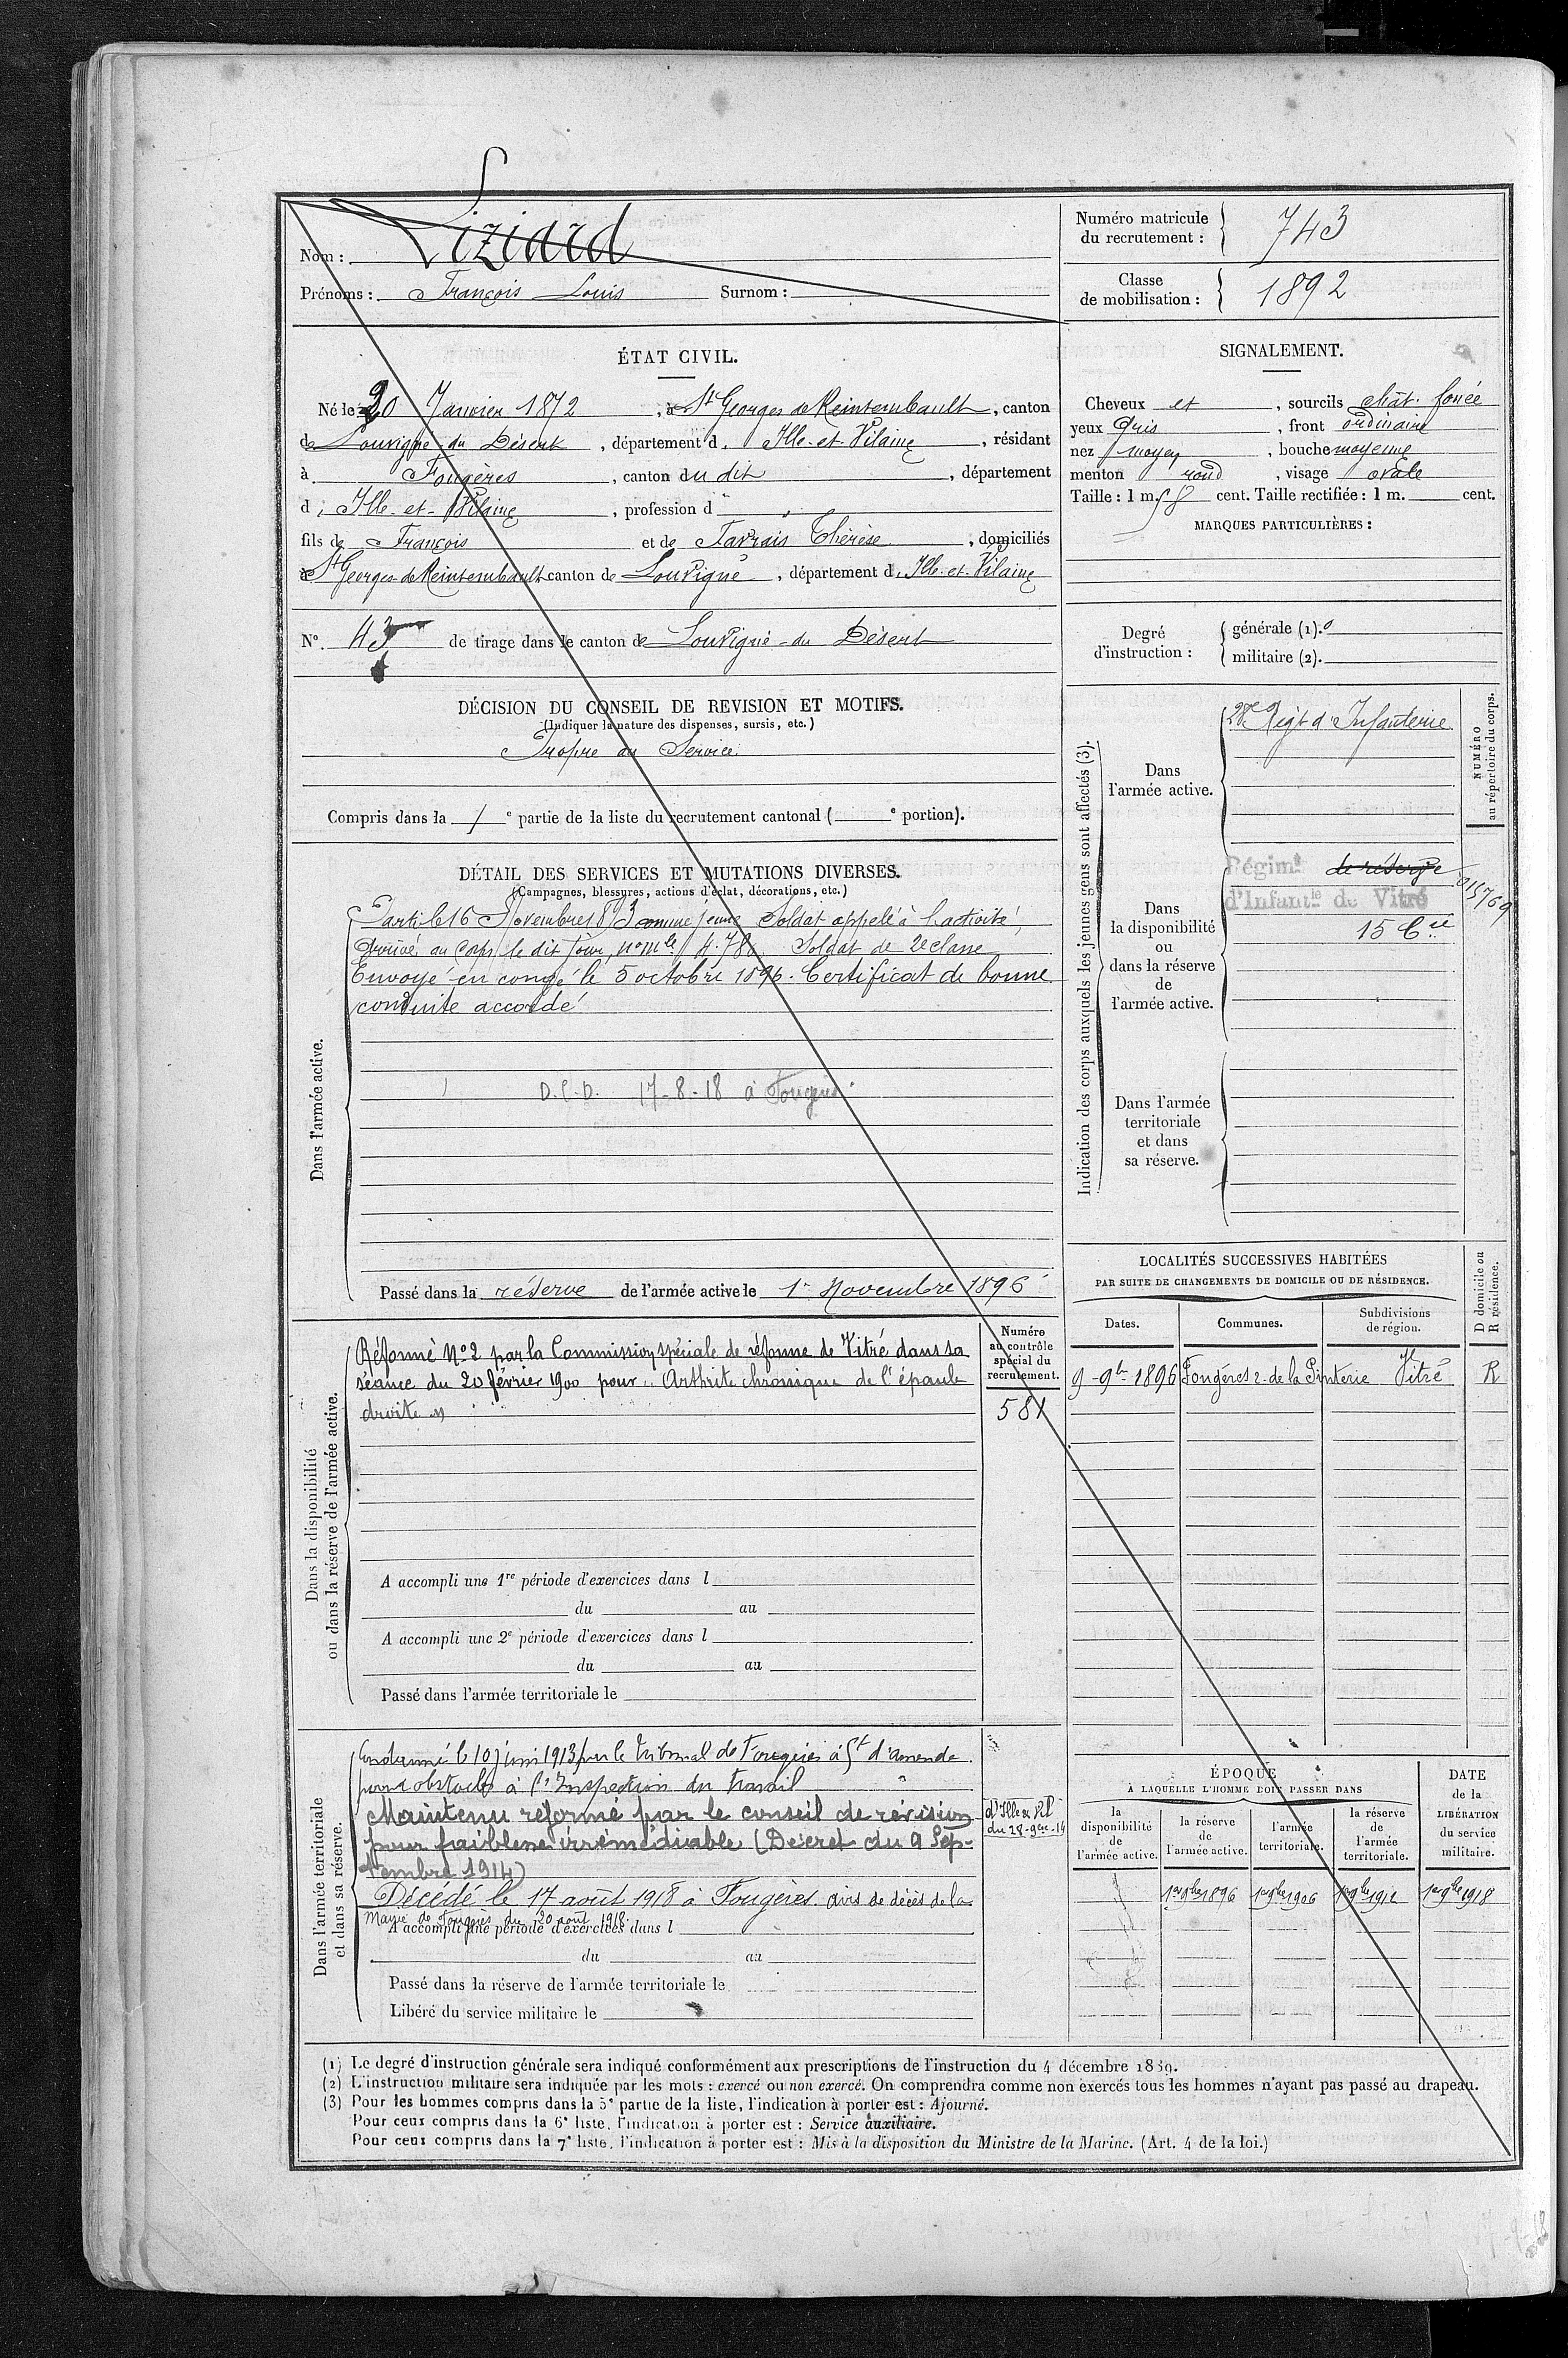 Nom : Liziard
Prénoms : François Louis Surnom :
Numéro matricule du recrutement : 743
Classe de mobilisation : 1892
ÉTAT CIVIL.
Né le 20 Janvier 1872, à St Georges de Reintembault, canton
de Louvigné-du Désert, département d'Ille-et-Vilaine, résidant
à Fougères, canton du dit, département
d'Ille-et-Vilaine, profession d
fils de François et de Thérèse, domiciliés
à St Georges-de Reintembault canton de Louvigné, département d'Ille-et-Vilaine
N° 43 de tirage dans le canton de Louvigné-du Désert
DÉCISION DU CONSEIL DE REVISION ET MOTIFS.
(Indiquer la nature des dispenses, sursis, etc.)
Propre au Service.
Compris dans la 1e partie de la liste du recrutement cantonal ( e portion).
DÉTAIL DES SERVICES ET MUTATIONS DIVERSES.
(Campagnes, blessures, actions d'éclat, décorations, etc.)
Dans l'armée active.
Parti le 16 Novembre 1893 comme jeune Soldat appelé à l'activité,
arrivé au Corps le dit jour, n° mle Soldat de 2e classe
Envoyé en congé le 5 octobre 1896. Certificat de bonne
conduite accordé
D.C.D. 17-8-18 à Fougères.
Passé dans la réserve de l'armée active le 1er Novembre 1896
Dans la disponibilité
ou dans la réserve de l'armée active.
Réformé N°2 par la Commission spéciale de réforme de Vitré dans sa
séance du 20 février 1900 pour "Arthrite chronique de l'épaule
droite"
Numéro
au contrôle
spécial du
recrutement.
581
A accompli une 1re période d'exercices dans l
du au
A accompli une 2e période d'exercices dans l
du au
Passé dans l'armée territoriale le
Dans l'armée territoriale
et dans sa réserve.
Condamné le 10 juin 1913 par le tribunal de Fougères à 5f d'amende
pour obstacle à l'Inspection du travail
Maintenu réformé par le conseil de révision
d'Ille & Vil
du 28-9bre-14
pour faiblesse irrémédiable (Décret du 9 Sep-
tembre 1914)
Décédé le 17 août 1918 à Fougères. avis de décès de la
Mairie de Fougères du 20 août 1918.
A accompli une période d'exercices dans l
du au
Passé dans la réserve de l'armée territoriale le
Libéré du service militaire le
SIGNALEMENT.
Cheveux et, sourcils chât. foncé
yeux Gris, front ordinaire
nez moyen, bouche moyenne
menton rond, visage ovale
Taille : 1 m. 58 cent. Taille rectifiée : 1 m. cent.
MARQUES PARTICULIÈRES :
Degré
d'instruction :
générale (1). 0
militaire (2).
Indication des corps auxquels les jeunes gens sont affectés (3).
NUMÉRO
au répertoire du corps.
Dans
l'armée active.
Regt d'Infanterie
Dans
la disponibilité
ou
dans la réserve
de
l'armée active.
Régimt de réserve
d'Infantie de Vitré
15 Cie
015769
Dans l'armée
territoriale
et dans
sa réserve.
LOCALITÉS SUCCESSIVES HABITÉES
PAR SUITE DE CHANGEMENTS DE DOMICILE OU DE RÉSIDENCE.
D domicile ou
R résidence.
Dates. Communes. Subdivisions
de région.
9-9bre 1896 Fougères r. de la Pinterie Vitré R
ÉPOQUE
À LAQUELLE L'HOMME DOIT PASSER DANS
la
disponibilité
de
l'armée active.
la réserve
de
l'armée active.
l'armée
territoriale.
la réserve
de
l'armée
territoriale.
DATE
de la
LIBÉRATION
du service
militaire.
1er 9bre 1896 1er 9bre 1906 1er 9bre 1912 1er 9bre 1918
(1) Le degré d'instruction générale sera indiqué conformément aux prescriptions de l'instruction du 4 décembre 1889.
(2) L'instruction militaire sera indiquée par les mots : exercé ou non exercé. On comprendra comme non exercés tous les hommes n'ayant pas passé au drapeau.
(3) Pour les hommes compris dans la 5e partie de la liste, l'indication à porter est : Ajourné.
Pour ceux compris dans la 6e liste, l'indication à porter est : Service auxiliaire.
Pour ceux compris dans la 7e liste, l'indication à porter est : Mis à la disposition du Ministre de la Marine. (Art. 4 de la loi.)